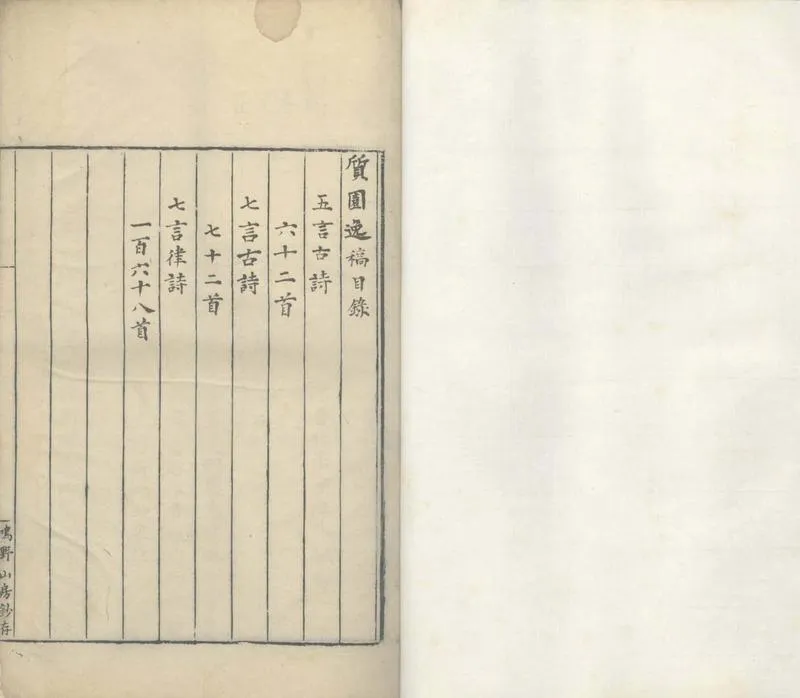 质園逸稿目錄
五言古詩
六十二首
七言古詩
七十二首
七言律詩
一百六十八首
鳴野山房鈔存